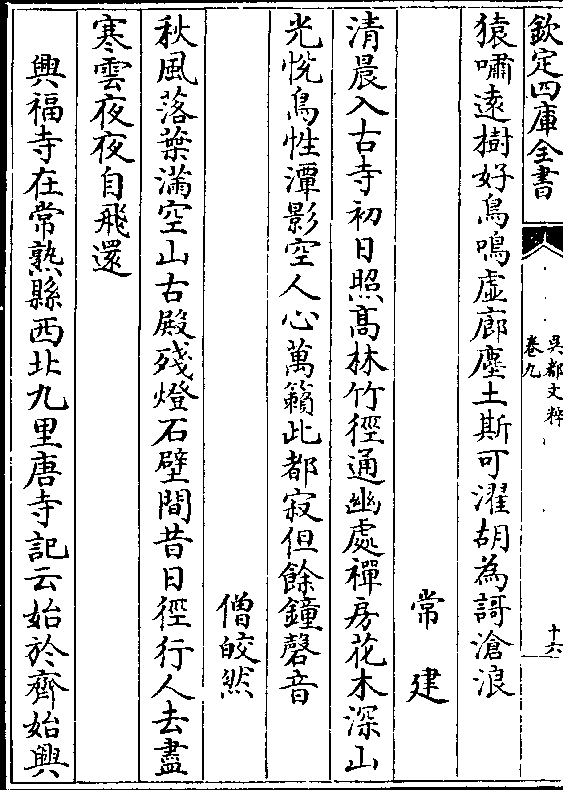 欽定四庫全書
吳都文粹
卷九
十六
猿嘯遠樹好鳥鳴虛廊塵土斯可濯胡為謌滄浪
常建
清晨入古寺初日照髙林竹徑通幽處禪房花木深山
光悅鳥性潭影空人心萬籟此都寂但餘鐘磬音
僧皎然
秋風落葉滿空山古殿殘燈石壁間昔日徑行人去盡
寒雲夜夜自飛還
興福寺在常熟縣西北九里唐寺記云始於齊始興